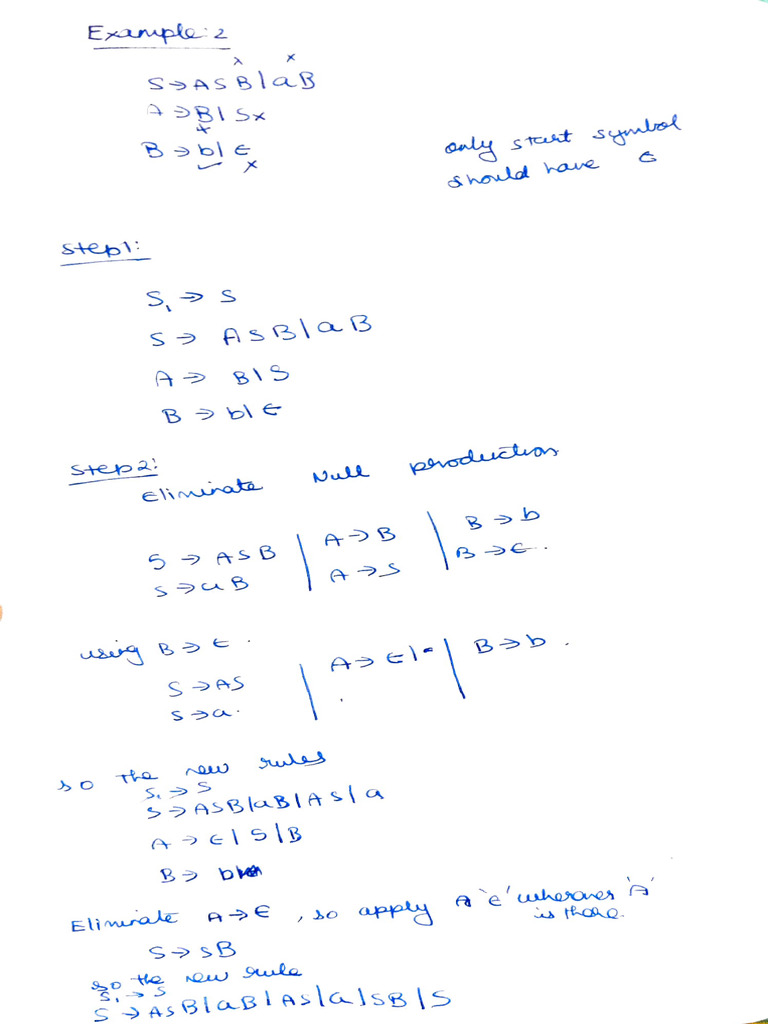 Example: 2
S → ASB | aB
A → B | S x
B → b | ε
only start symbol
should have ε
Step 1:
S₁ → S
S → ASB | aB
A → B | S
B → b | ε
Step 2:
Eliminate Null production
S → ASB | A → B | B → b
S → aB | A → S | B → ε.
using B → ε.
S → AS | A → ε | | B → b.
S → a.
so the new rules
S₁ → S
S → ASB | aB | AS | a
A → ε | S | B
B → b
Eliminate A → ε, so apply 'ε' wherever 'A'
is there.
S → SB
so the new rule
S₁ → S
S → ASB | aB | AS | a | SB | S